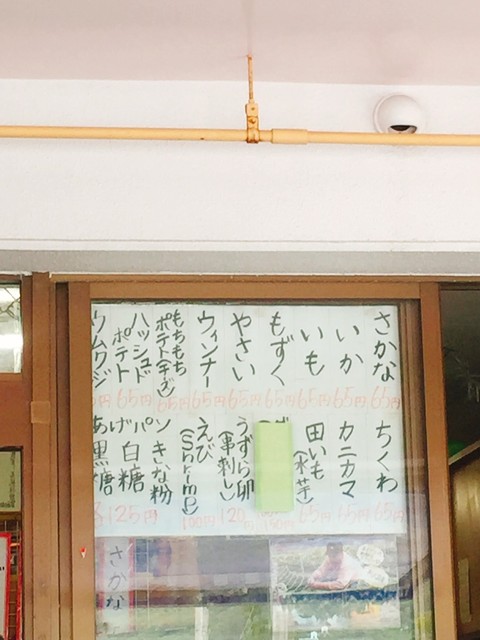 さかな 65円
いか 65円
いも 65円
もずく 65円
やさい 65円
ウィンナー 65円
もちもち
ポテト(チーズ) 65円
ハッシュド
ポテト 65円
ウムクジ
ちくわ 65円
カニカマ 65円
田いも
(水芋) 65円
うずら卵
(串刺し) 120円
えび
(Shrimp) 100円
ソきな粉
パ白糖
げ
あ黒糖
各125円
さかな